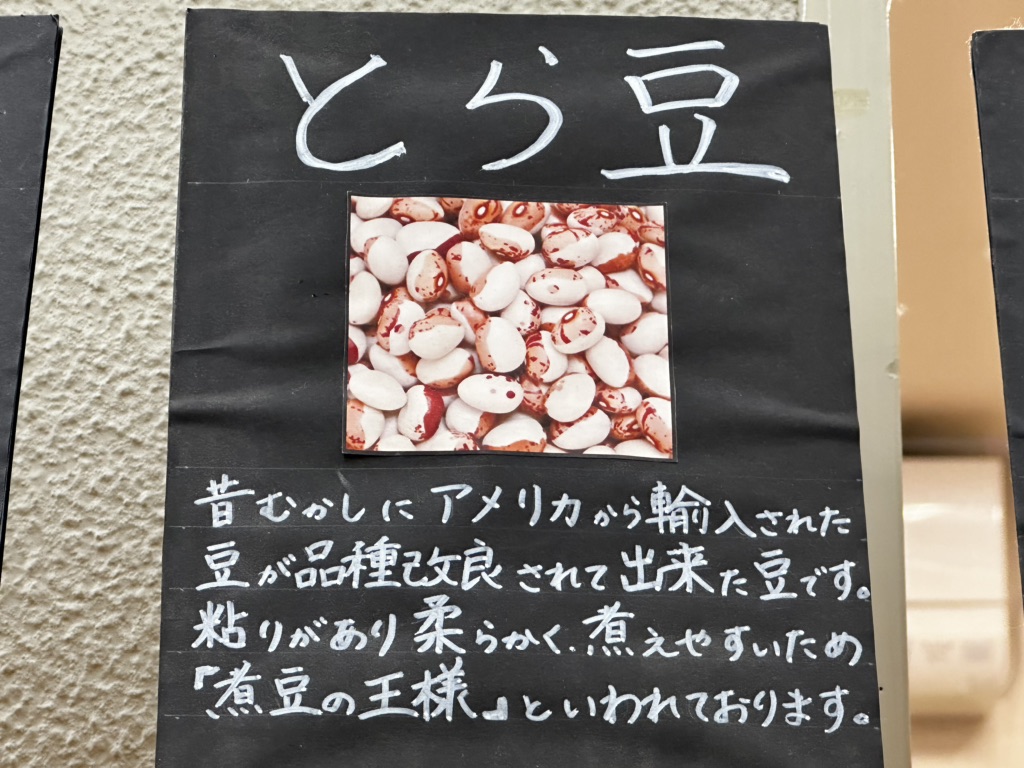 とら豆
昔むかしにアメリカから輸入された
豆が品種改良されて出来た豆です。
粘りがあり柔らかく、煮えやすいため
『煮豆の王様』といわれております。